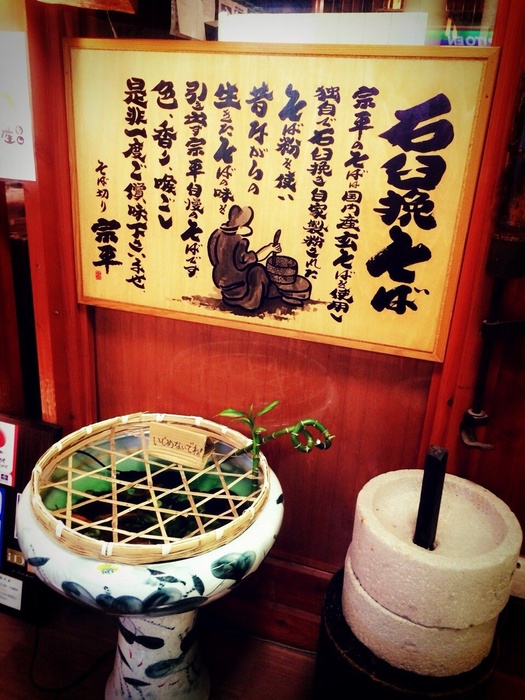 石臼挽そば
宗平のそばは国内産玄そばを使用し
独自で石臼挽き自家製粉された
そば粉を使い
昔ながらの
生きたそばの味を
引き出す宗平自慢のそばです
色、香り、喉ごし
是非一度ご賞味下さいませ
そば切り 宗平
いじめないでね!